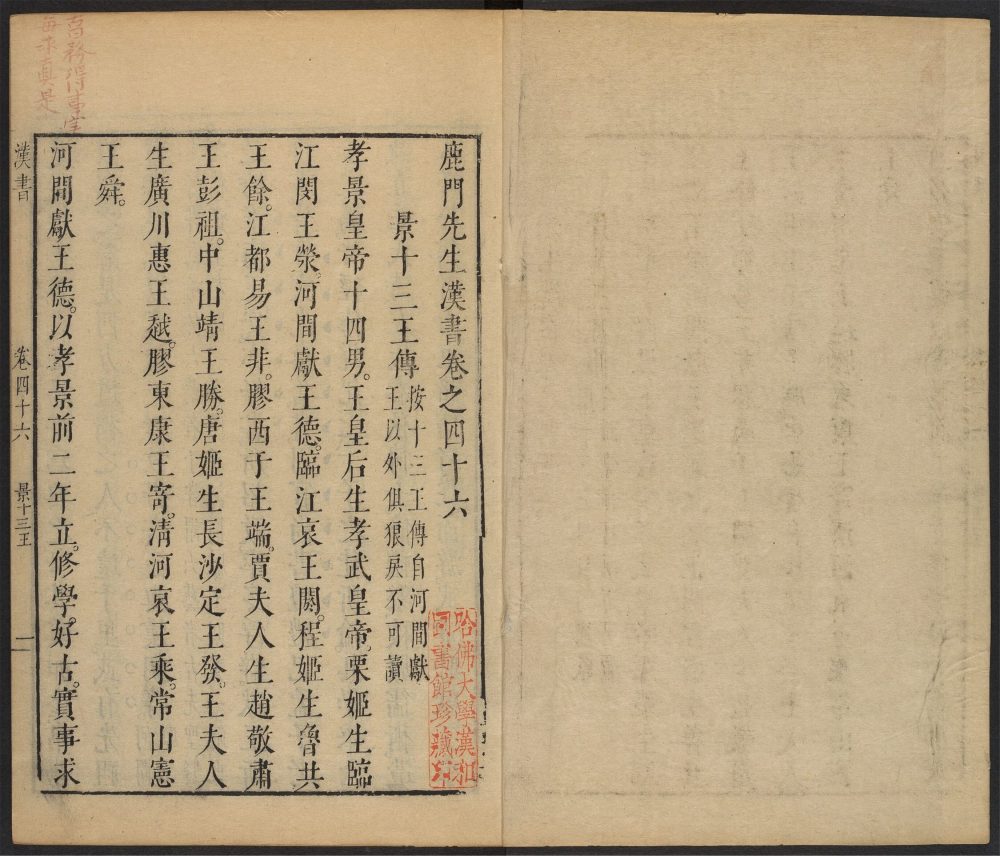 鹿門先生漢書卷之四十六
景十三王傳
按十三王傳自河間獻
王以外俱狠戾不可讀
孝景皇帝十四男。王皇后生孝武皇帝。栗姬生臨
江閔王榮。河間獻王德。臨江哀王閼。程姬生魯共
王餘。江都易王非。膠西于王端。賈夫人生趙敬肅
王彭祖。中山靖王勝。唐姬生長沙定王發。王夫人
生廣川惠王越。膠東康王寄。清河哀王乘。常山憲
王舜。
河間獻王德。以孝景前二年立。修學。好古。實事求
漢書
卷四十六
景十三王
一
哈佛大學漢和
圖書館珍藏印
務得事實
每求真是